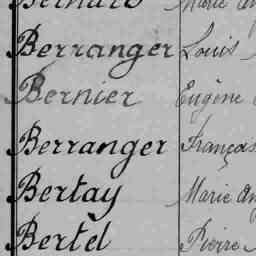 Bernard Marie
Berranger Louis
Bernier Eugène
Berranger François
Bertay Marie
Bertel Pierre